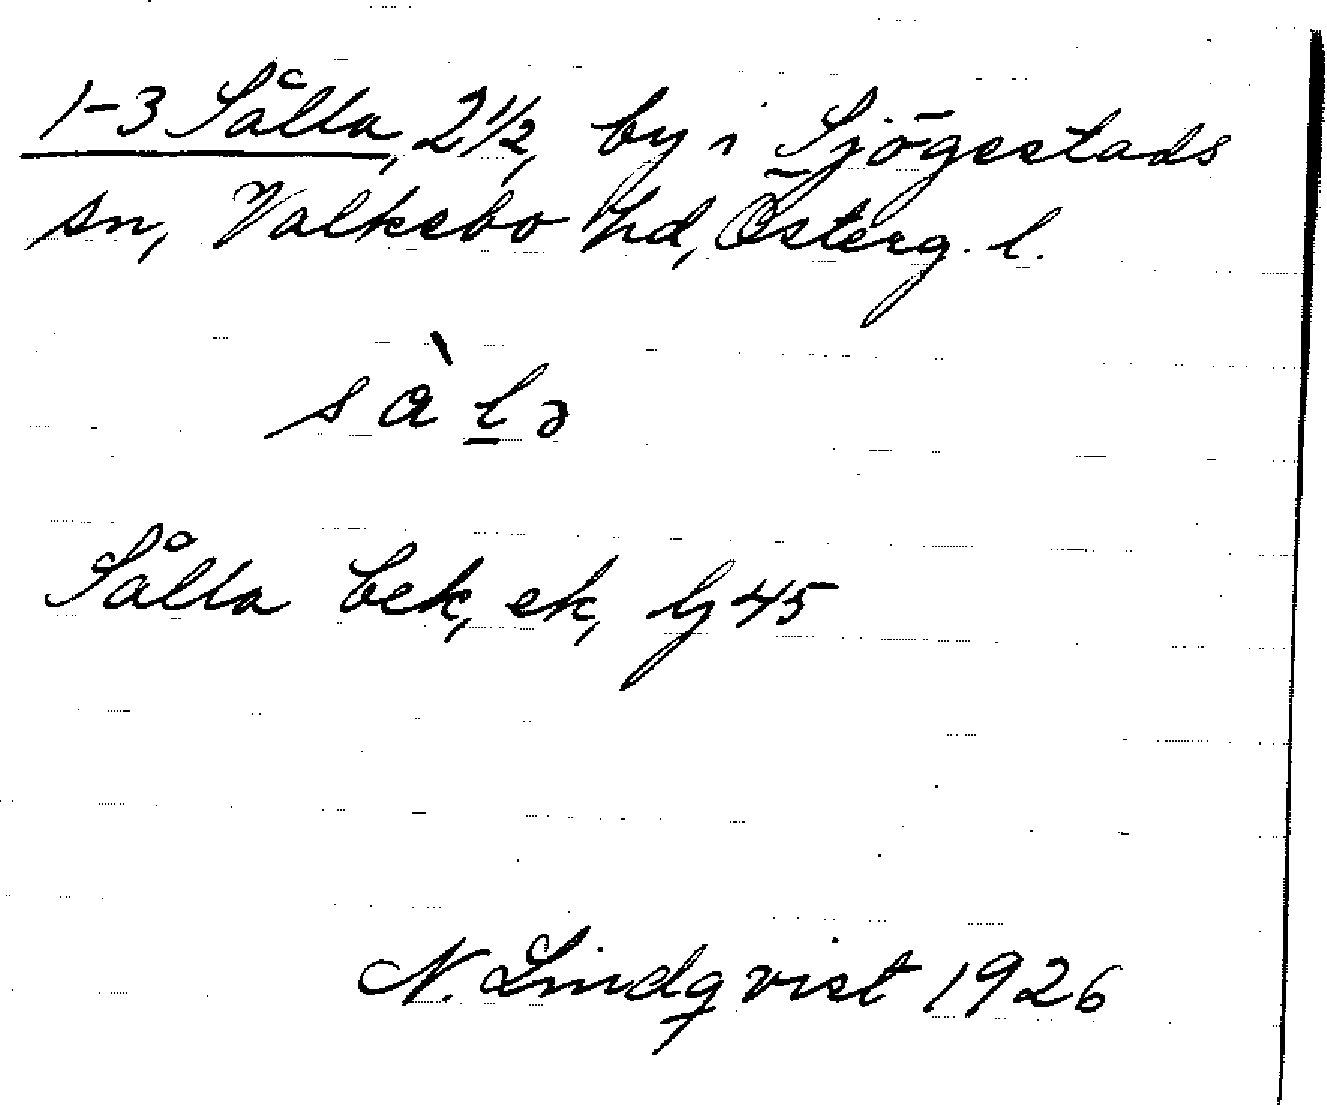 1-3 Sålla, 2 1/2, by i Sjögestads
sn, Valkebo hd, Österg. l.
sàlə
Sålla bek, ek, lj 45
N. Lindqvist 1926